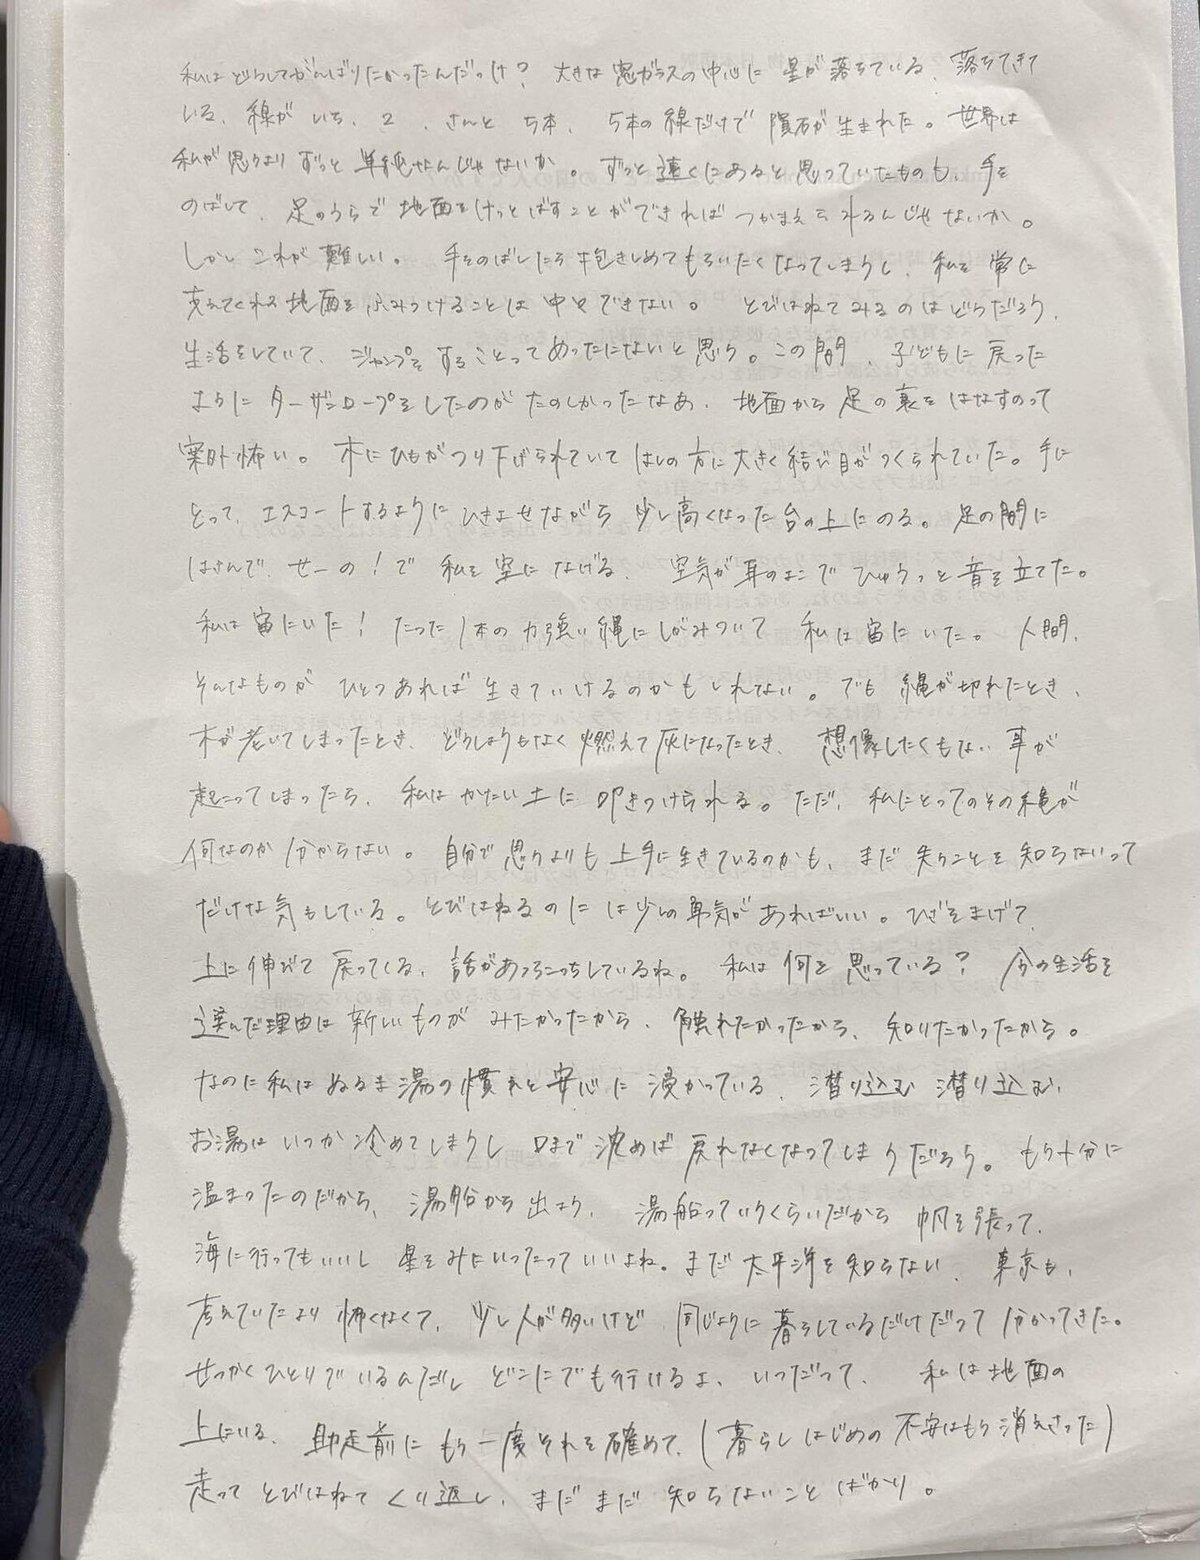 私はどうしてがんばりたかったんだっけ? 大きな窓ガラスの中心に星が落ちている、落ちてきて
いる、線がいち、2、さんと5本、5本の線だけで隕石が生まれた。世界は
私が思うよりずっと単純なんじゃないか。ずっと遠くにあると思っていたものも、手を
のばして、足のうらで地面をけっとばすことができればつかまえられるんじゃないか。
しかしこれが難しい。手をのばしたら抱きしめてもらいたくなってしまうし、私を常に
支えてくれる地面をふみつけることは中々できない。とびはねてみるのはどうだろう、
生活をしていて、ジャンプをすることってめったにないと思う。この間、子どもに戻った
ようにターザンロープをしたのがたのしかったなあ、地面から足の裏をはなすのって
案外怖い。木にひもがつり下げられていてはしの方に大きく結び目がつくられていた。手に
とって、エスコートするようにひきよせながら少し高くなった台の上にのる。足の間に
はさんで、せーの!で私を空になげる、空気が耳のよこでひゅうっと音を立てた。
私は宙にいた! たった1本の力強い縄にしがみついて私は宙にいた。人間、
そんなものがひとつあれば生きていけるのかもしれない。でも縄が切れたとき、
木が老いてしまったとき、どうしようもなく燃えて灰になったとき、想像したくもない事が
起こってしまったら、私はかたい土に叩きつけられる。ただ、私にとってのその縄が
何なのか分からない。自分で思うよりも上手に生きているのかも、まだ失うことを知らないって
だけな気もしている。とびはねるのには少しの勇気があればいい。ひざをまげて、
上に伸びて戻ってくる、話があっちこっちしているね。私は何を思っている? 今の生活を
選んだ理由は新しいものがみたかったから、触れたかったから、知りたかったから。
なのに私はぬるま湯の慣れと安心に浸かっている、潜り込む潜り込む、
お湯はいつか冷めてしまうし口まで沈めば戻れなくなってしまうだろう。もう十分に
温まったのだから、湯船から出よう、湯船っていうくらいだから帆を張って、
海に行ってもいいし星をみにいったっていいよね。まだ太平洋を知らない、東京も、
考えていたより怖くなくて、少し人が多いけど同じように暮らしているだけだって分かってきた。
せっかくひとりでいるんだしどこにでも行けるよ、いつだって、私は地面の
上にいる、助走前にもう一度それを確めて、(暮らしはじめの不安はもう消えさった)
走ってとびはねてくり返し、まだまだ知らないことばかり。